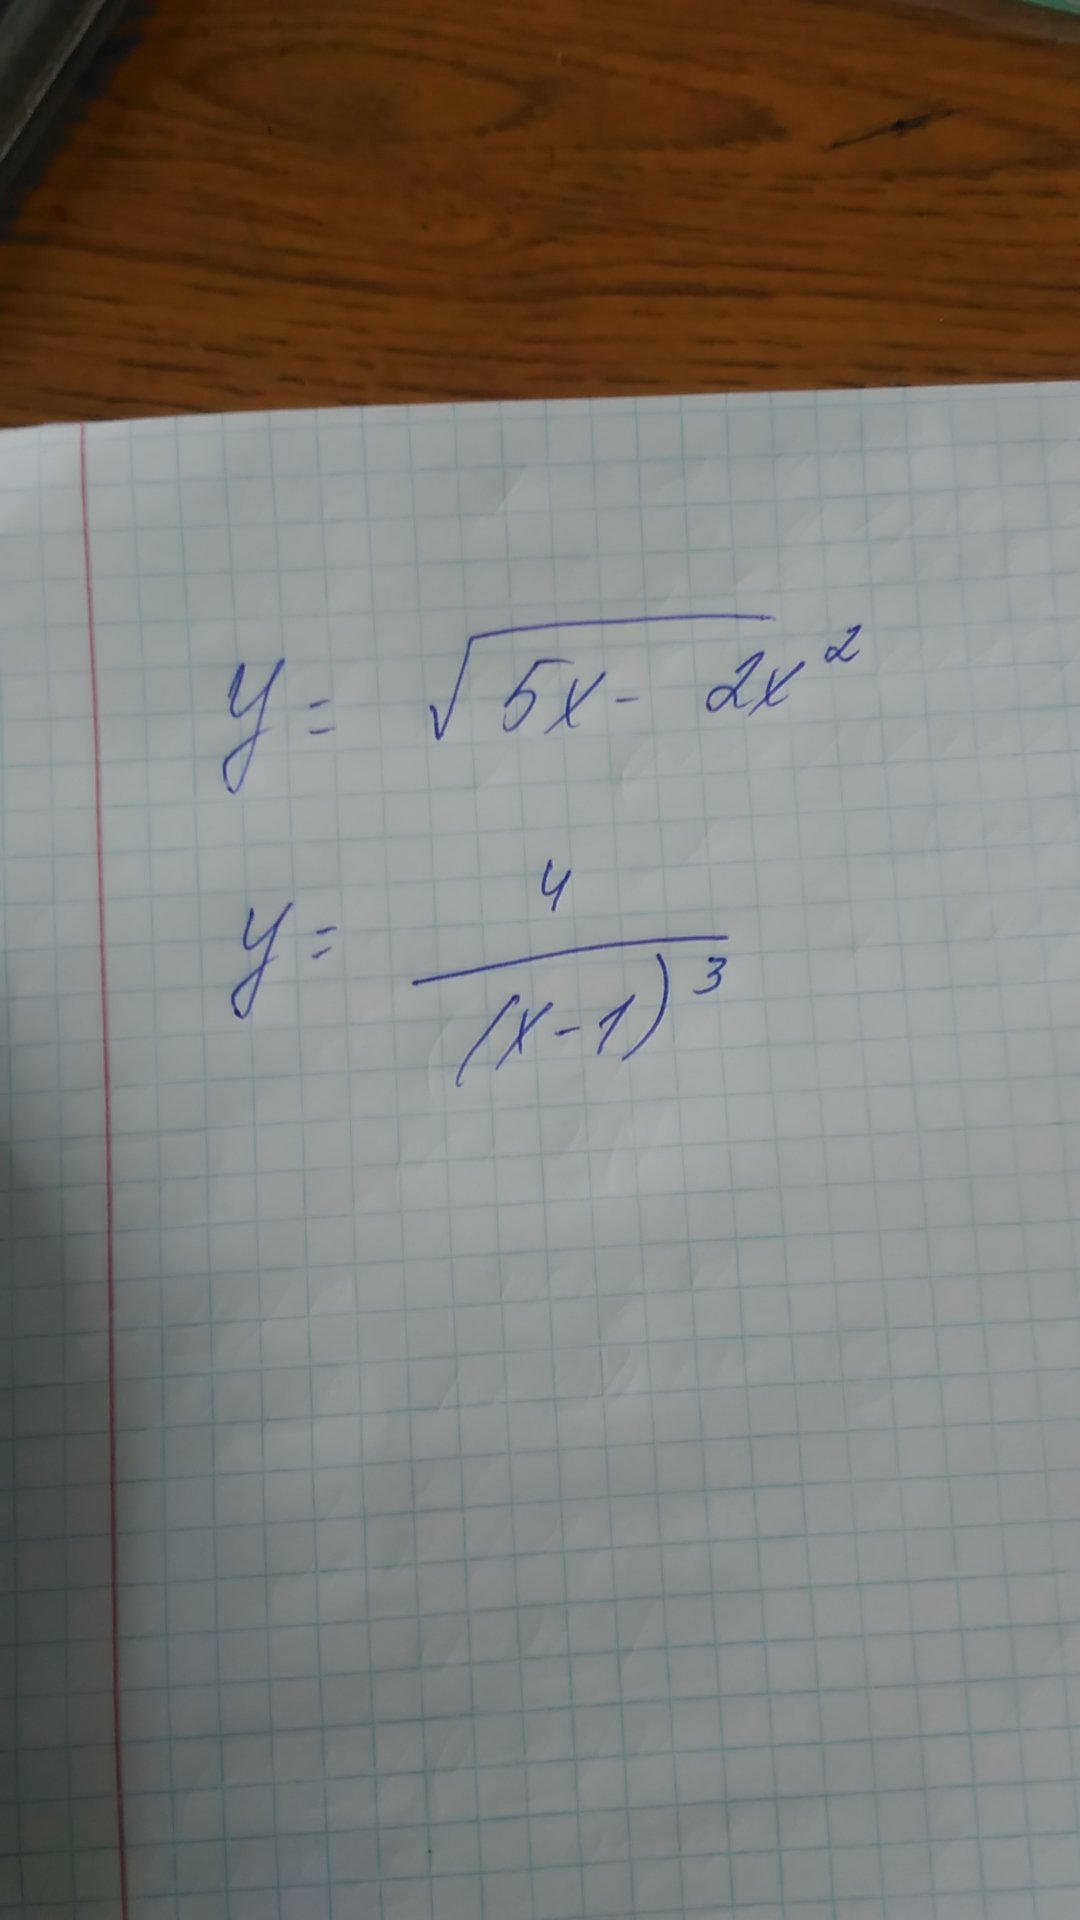 y = √5x - 2x²
y = 4/(x-1)³